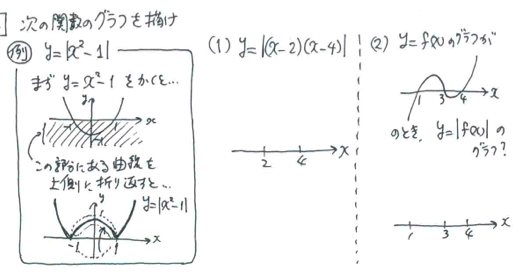 次の関数のグラフを描け
例 y=|x²-1|
まず y=x²-1 をかくと…
y
-1 1 x
-1
この部分にある曲線を
上側に折り返すと…
y
1 y=|x²-1|
-1 1 x
(1) y=|(x-2)(x-4)|
2 4 x
(2) y=f(x)のグラフが
1 3 4 x
のとき、y=|f(x)|の
グラフ?
1 3 4 x